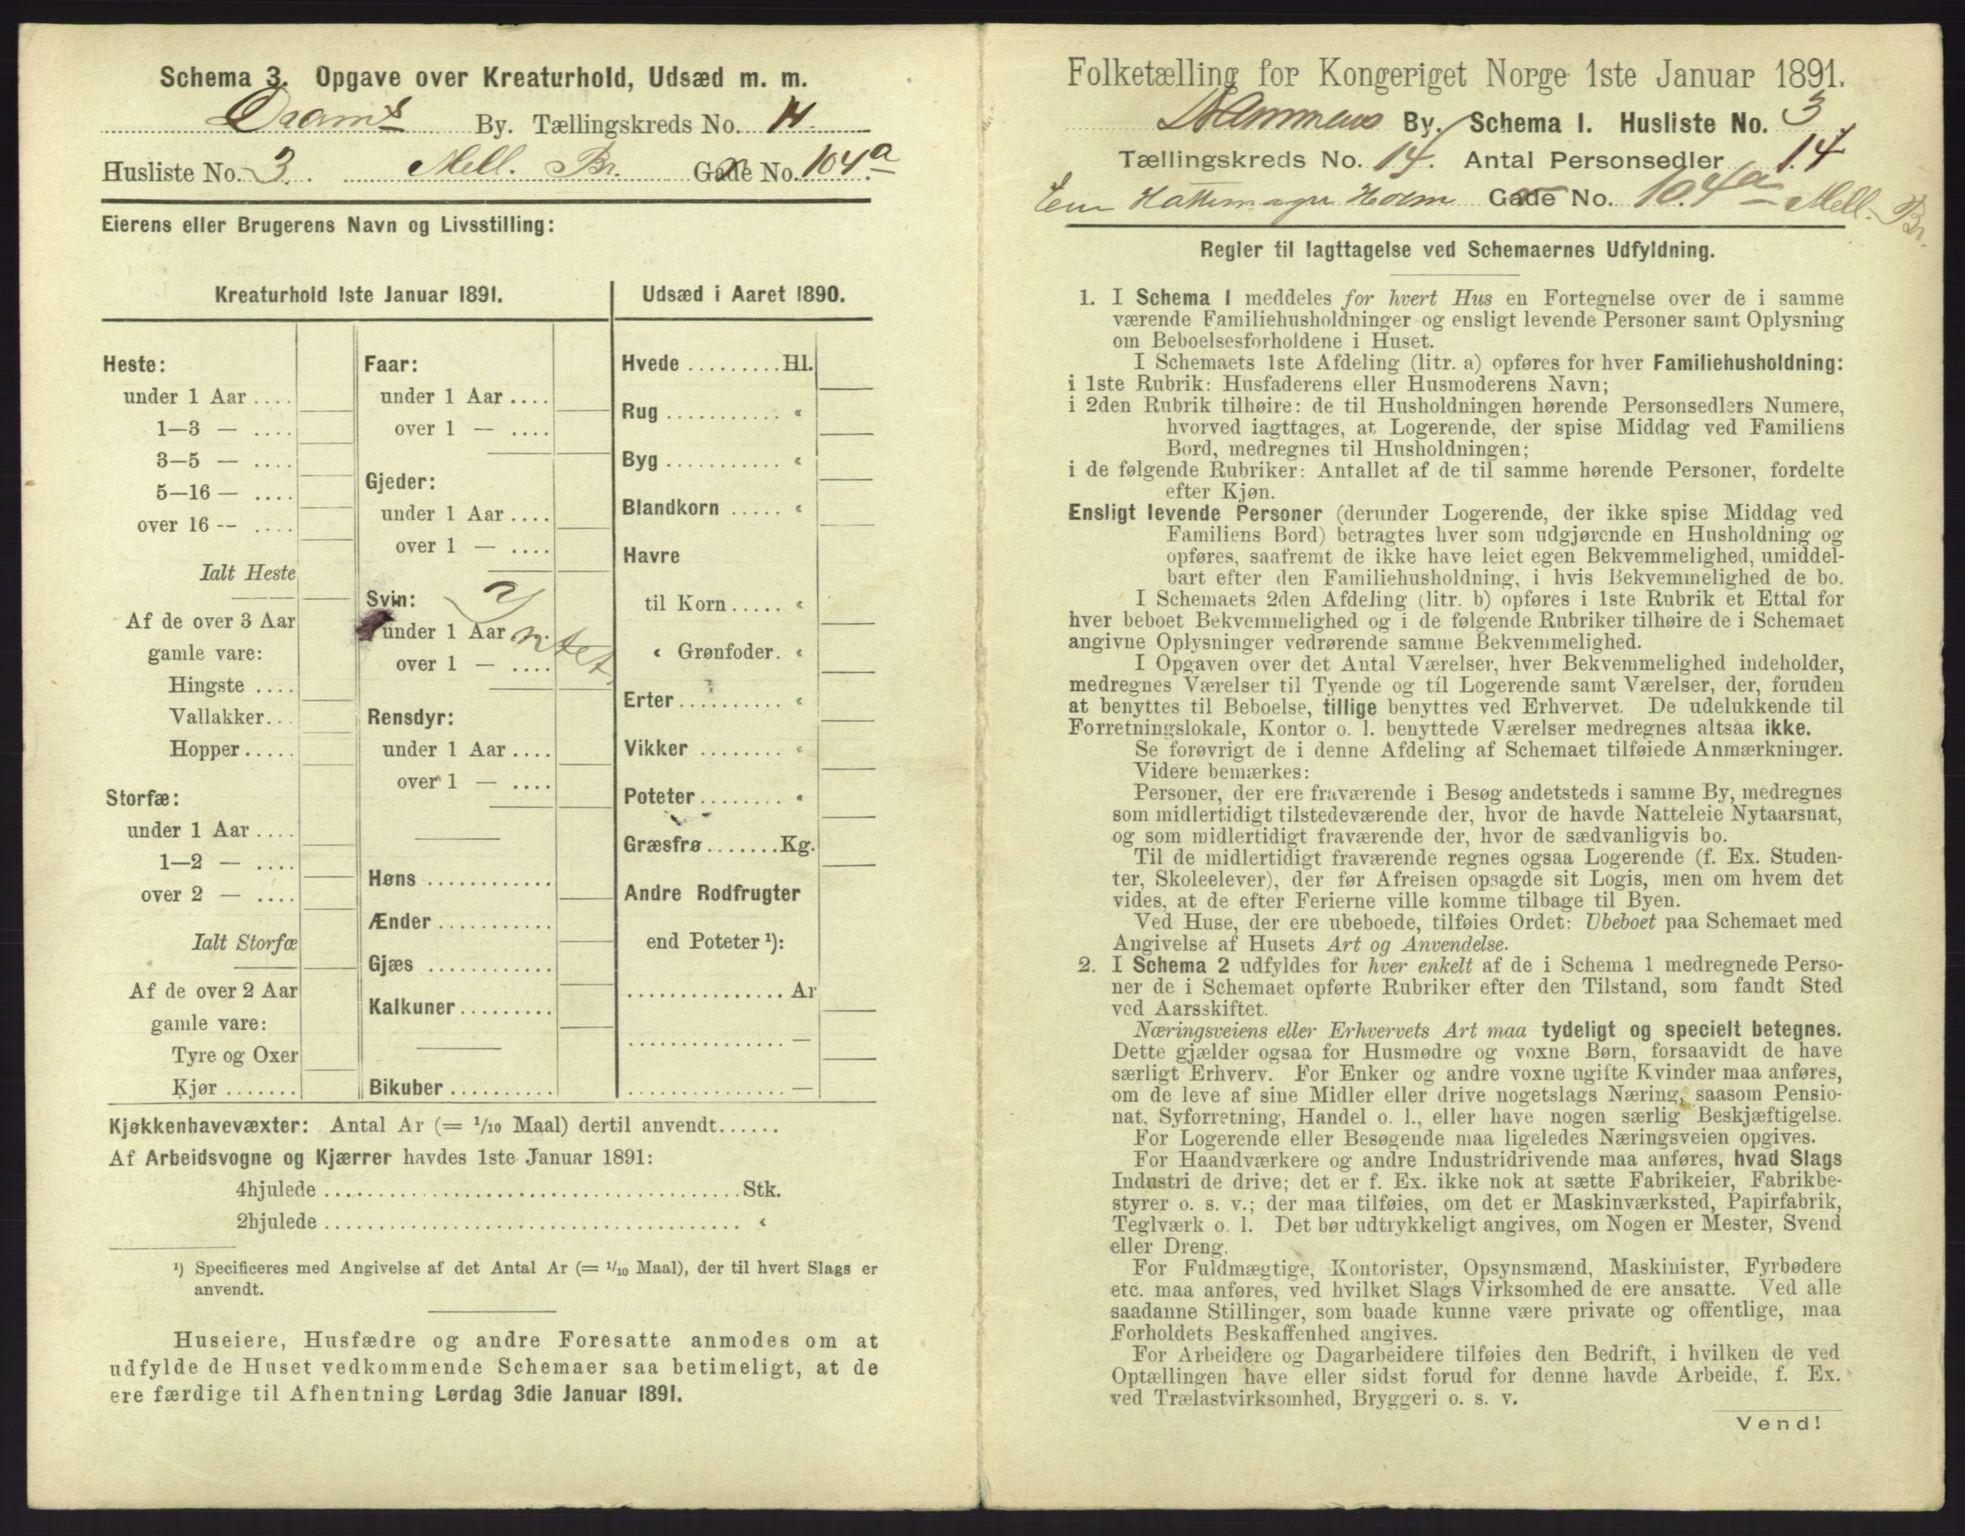 Schema 3. Opgave over Kreaturhold, Udsæd m. m.
Dramns By. Tællingskreds No. 14.
Husliste No. 3. Mell. Br. Gade No. 104a
Eierens eller Brugerens Navn og Livsstilling:
Kreaturhold 1ste Januar 1891.
Heste:
under 1 Aar ....
1—3 — ....
3—5 — ....
5—16 — ....
over 16 — ....
Ialt Heste
Af de over 3 Aar
gamle vare:
Hingste ....
Vallakker...
Hopper.....
Storfæ:
under 1 Aar ....
1—2 — ....
over 2 — ....
Ialt Storfæ
Af de over 2 Aar
gamle vare:
Tyre og Oxer
Kjør .......
Faar:
under 1 Aar ....
over 1 — ....
Gjeder:
under 1 Aar ....
over 1 — ....
Svin:
under 1 Aar
over 1 — ....
Intet
Rensdyr:
under 1 Aar ....
over 1 — ....
Høns ............
Ænder ...........
Gjæs ............
Kalkuner.........
Bikuber..........
Udsæd i Aaret 1890.
Hvede .........Hl.
Rug ........... «
Byg ........... «
Blandkorn ..... «
Havre
til Korn..... «
« Grønfoder. «
Erter.......... «
Vikker ........ «
Poteter........ «
Græsfrø.......Kg.
Andre Rodfrugter
end Poteter ¹):
............... Ar
............... —
............... —
Kjøkkenhavevæxter: Antal Ar (= 1/10 Maal) dertil anvendt......
Af Arbeidsvogne og Kjærrer havdes 1ste Januar 1891:
4hjulede ..............................Stk.
2hjulede .............................. «
¹) Specificeres med Angivelse af det Antal Ar (= 1/10 Maal), der til hvert Slags er
anvendt.
Huseiere, Husfædre og andre Foresatte anmodes om at
udfylde de Huset vedkommende Schemaer saa betimeligt, at de
ere færdige til Afhentning Lørdag 3die Januar 1891.
Folketælling for Kongeriget Norge 1ste Januar 1891.
Drammens By. Schema 1. Husliste No. 3
Tællingskreds No. 14. Antal Personsedler 14
Hattemager Holm Gade No. 104a Mell. Br.
Regler til Iagttagelse ved Schemaernes Udfyldning.
1. I Schema 1 meddeles for hvert Hus en Fortegnelse over de i samme
værende Familiehusholdninger og ensligt levende Personer samt Oplysning
om Beboelsesforholdene i Huset.
I Schemaets 1ste Afdeling (litr. a) opføres for hver Familiehusholdning:
i 1ste Rubrik: Husfaderens eller Husmoderens Navn;
i 2den Rubrik tilhøire: de til Husholdningen hørende Personsedlers Numere,
hvorved iagttages, at Logerende, der spise Middag ved Familiens
Bord, medregnes til Husholdningen;
i de følgende Rubriker: Antallet af de til samme hørende Personer, fordelte
efter Kjøn.
Ensligt levende Personer (derunder Logerende, der ikke spise Middag ved
Familiens Bord) betragtes hver som udgjørende en Husholdning og
opføres, saafremt de ikke have leiet egen Bekvemmelighed, umiddel-
bart efter den Familiehusholdning, i hvis Bekvemmelighed de bo.
I Schemaets 2den Afdeling (litr. b) opføres i 1ste Rubrik et Ettal for
hver beboet Bekvemmelighed og i de følgende Rubriker tilhøire de i Schemaet
angivne Oplysninger vedrørende samme Bekvemmelighed.
I Opgaven over det Antal Værelser, hver Bekvemmelighed indeholder,
medregnes Værelser til Tyende og til Logerende samt Værelser, der, foruden
at benyttes til Beboelse, tillige benyttes ved Erhvervet. De udelukkende til
Forretningslokale, Kontor o. l. benyttede Værelser medregnes altsaa ikke.
Se forøvrigt de i denne Afdeling af Schemaet tilføiede Anmærkninger.
Videre bemærkes:
Personer, der ere fraværende i Besøg andetsteds i samme By, medregnes
som midlertidigt tilstedeværende der, hvor de havde Natteleie Nytaarsnat,
og som midlertidigt fraværende der, hvor de sædvanligvis bo.
Til de midlertidigt fraværende regnes ogsaa Logerende (f. Ex. Studen-
ter, Skoleelever), der før Afreisen opsagde sit Logis, men om hvem det
vides, at de efter Ferierne ville komme tilbage til Byen.
Ved Huse, der ere ubeboede, tilføies Ordet: Ubeboet paa Schemaet med
Angivelse af Husets Art og Anvendelse.
2. I Schema 2 udfyldes for hver enkelt af de i Schema 1 medregnede Perso-
ner de i Schemaet opførte Rubriker efter den Tilstand, som fandt Sted
ved Aarsskiftet.
Næringsveiens eller Erhvervets Art maa tydeligt og specielt betegnes.
Dette gjælder ogsaa for Husmødre og voxne Børn, forsaavidt de have
særligt Erhverv. For Enker og andre voxne ugifte Kvinder maa anføres,
om de leve af sine Midler eller drive nogetslags Næring, saasom Pensio-
nat, Syforretning, Handel o. l., eller have nogen særlig Beskjæftigelse.
For Logerende eller Besøgende maa ligeledes Næringsveien opgives.
For Haandværkere og andre Industridrivende maa anføres, hvad Slags
Industri de drive; det er f. Ex. ikke nok at sætte Fabrikeier, Fabrikbe-
styrer o. s. v.; der maa tilføies, om det er Maskinværksted, Papirfabrik,
Teglværk o. l. Det bør udtrykkeligt angives, om Nogen er Mester, Svend
eller Dreng.
For Fuldmægtige, Kontorister, Opsynsmænd, Maskinister, Fyrbødere
etc. maa anføres, ved hvilket Slags Virksomhed de ere ansatte. Ved alle
saadanne Stillinger, som baade kunne være private og offentlige, maa
Forholdets Beskaffenhed angives.
For Arbeidere og Dagarbeidere tilføies den Bedrift, i hvilken de ved
Optællingen have eller sidst forud for denne havde Arbeide, f. Ex.
ved Trælastvirksomhed, Bryggeri o. s. v.
Vend!